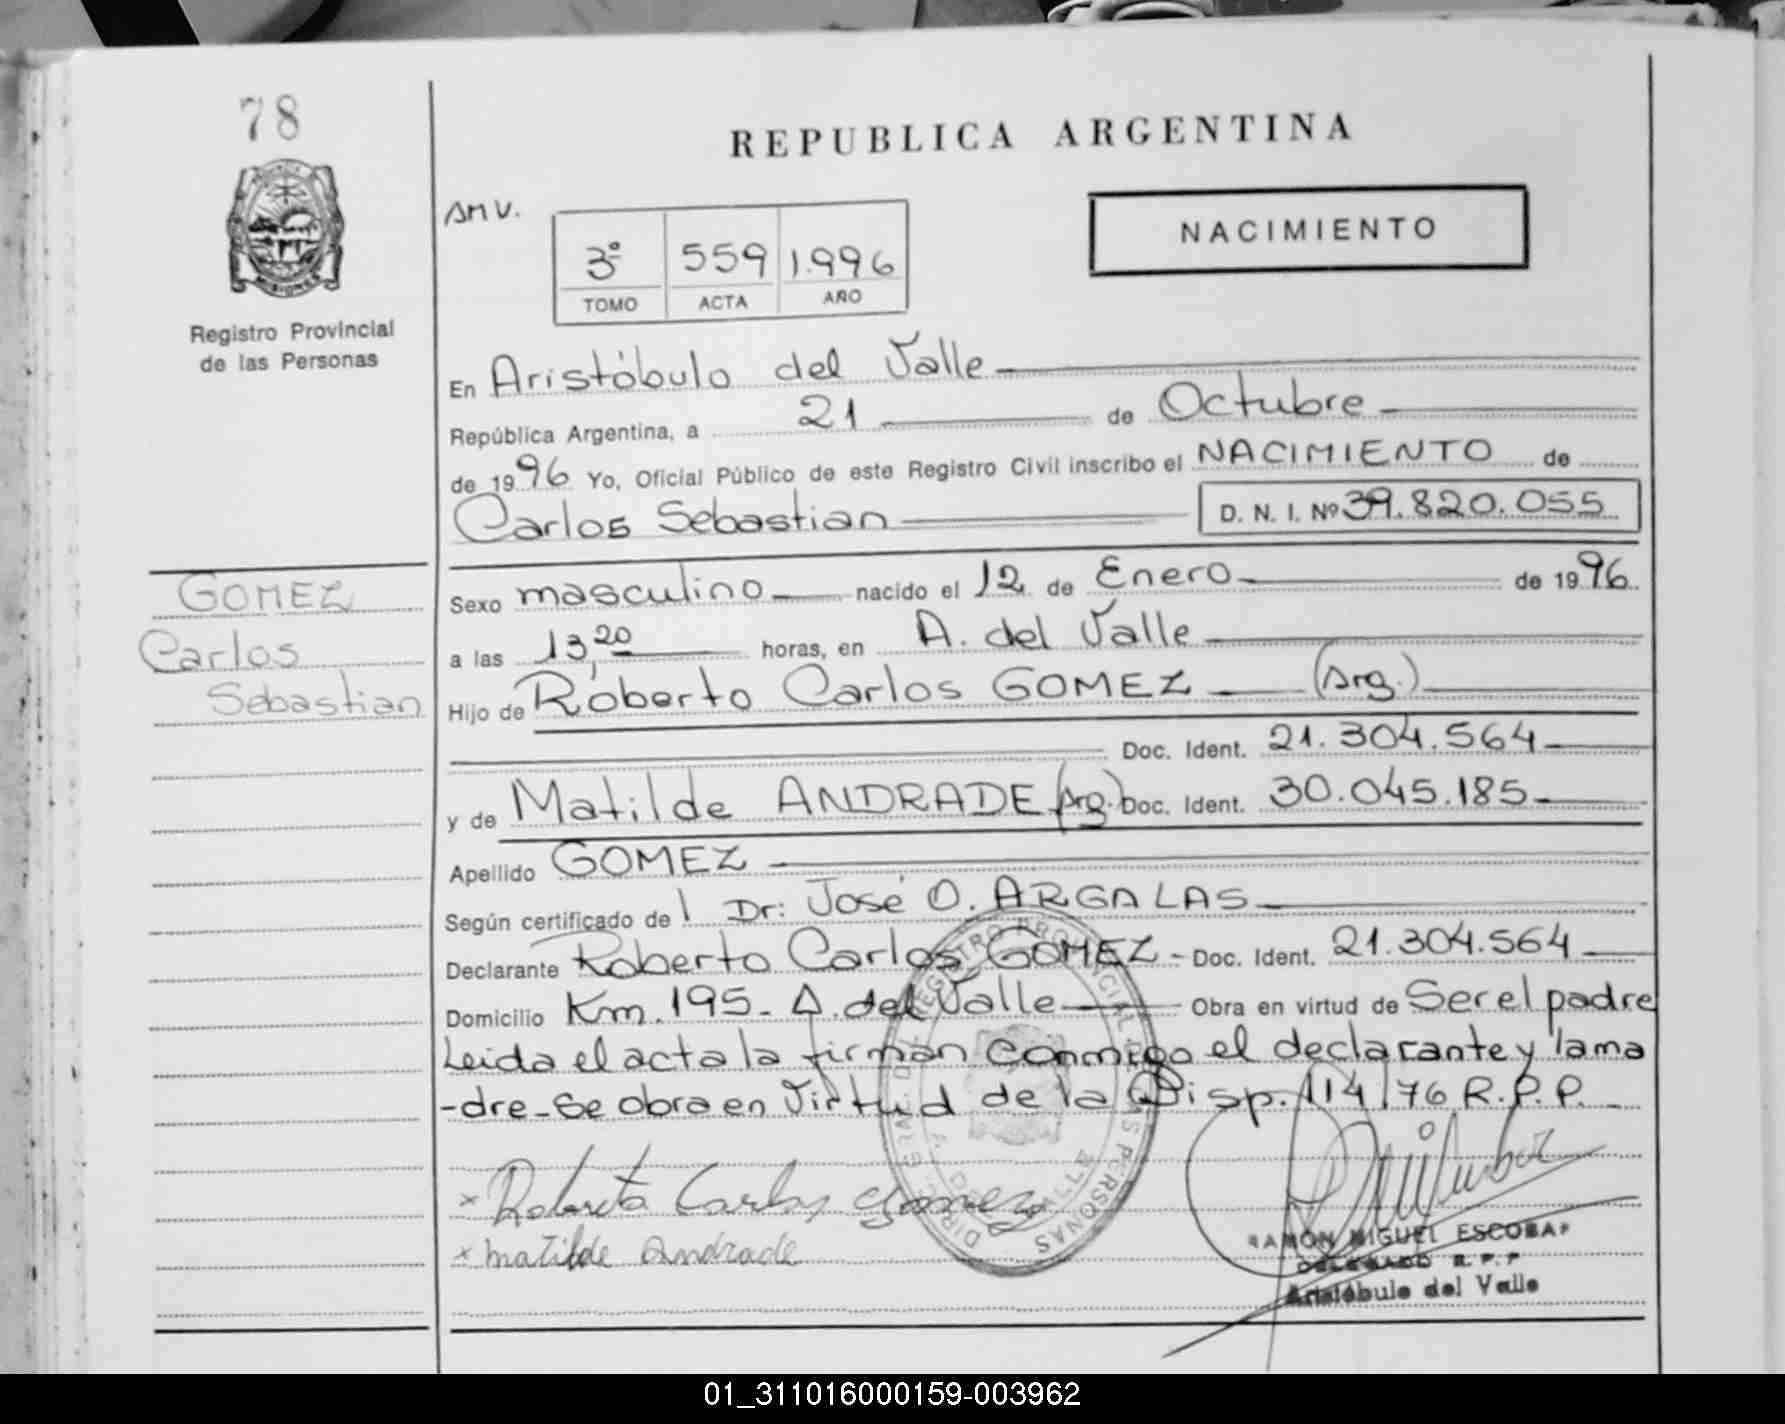 78
REPUBLICA ARGENTINA
MISIONES
Registro Provincial
de las Personas
AMV.
3º 559 1.996
TOMO ACTA AÑO
NACIMIENTO
En Aristóbulo del Valle
República Argentina, a 21 de Octubre
de 1996 Yo, Oficial Público de este Registro Civil inscribo el NACIMIENTO de
Carlos Sebastian D. N. I. Nº 39.820.055
GOMEZ
Carlos
Sebastian
Sexo masculino nacido el 12 de Enero de 1996
a las 13,20 horas, en A. del Valle
Hijo de Roberto Carlos GOMEZ (Arg.)
Doc. Ident. 21.304.564
y de Matilde ANDRADE (Arg.) Doc. Ident. 30.045.185
Apellido GOMEZ
Según certificado de Dr: José O. ARGALAS
Declarante Roberto Carlos GOMEZ - Doc. Ident. 21.304.564
Domicilio Km. 195- A. del Valle Obra en virtud de Ser el padre
Leida el acta la firman conmigo el declarante y la ma
-dre-Se obra en Virtud de la Disp. 114/76 R.P.P.
x Roberto Carlos Gomez
x Matilde Andrade
RAMÓN MIGUEL ESCOBAR
DELEGADO R.P.P
Aristóbulo del Valle
01_311016000159-003962